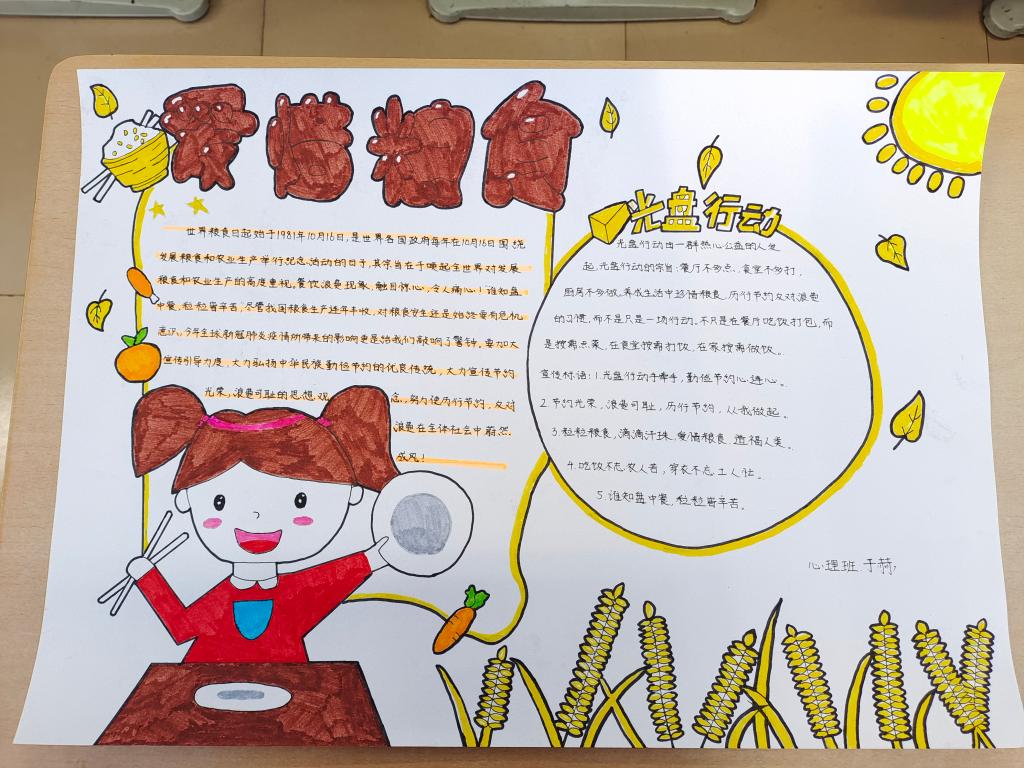 爱惜粮食
世界粮食日起始于1981年10月16日,是世界各国政府每年在10月16日围绕
发展粮食和农业生产举行纪念活动的日子,其宗旨在于唤起全世界对发展
粮食和农业生产的高度重视。餐饮浪费现象,触目惊心,令人痛心!谁知盘
中餐,粒粒皆辛苦,尽管我国粮食生产连年丰收,对粮食安全还是始终要有危机
意识。今年全球新冠肺炎疫情所带来的影响更是给我们敲响了警钟。要加大
宣传引导力度,大力弘扬中华民族勤俭节约的优良传统,大力宣传节约
光荣,浪费可耻的思想观念,努力使厉行节约,反对
浪费在全体社会中蔚然
成风!
光盘行动
光盘行动由一群热心公益的人发
起,光盘行动的宗旨:餐厅不多点、食堂不多打,
厨房不多做。养成生活中珍惜粮食、厉行节约反对浪费
的习惯,而不是只是一场行动。不只是在餐厅吃饭打包,而
是按需点菜,在食堂按需打饭,在家按需做饭。
宣传标语:1.光盘行动手牵手,勤俭节约心连心。
2.节约光荣,浪费可耻,厉行节约,从我做起。
3.粒粒粮食,滴滴汗珠,爱惜粮食,造福人类。
4.吃饭不忘农人苦,穿衣不忘工人壮。
5.谁知盘中餐,粒粒皆辛苦。
心理班 于赫